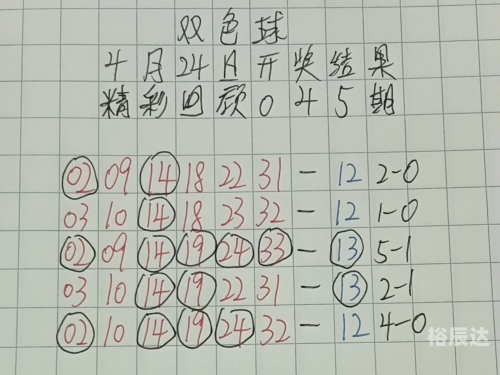 双色球
4月24日开奖结果
精彩回顾045期
02 09 14 18 22 31 — 12 2-0
03 10 14 18 23 32 — 12 1-0
02 09 14 19 24 33 — 13 5-1
03 10 14 19 22 31 — 13 2-1
02 10 14 19 24 32 — 12 4-0
裕辰达